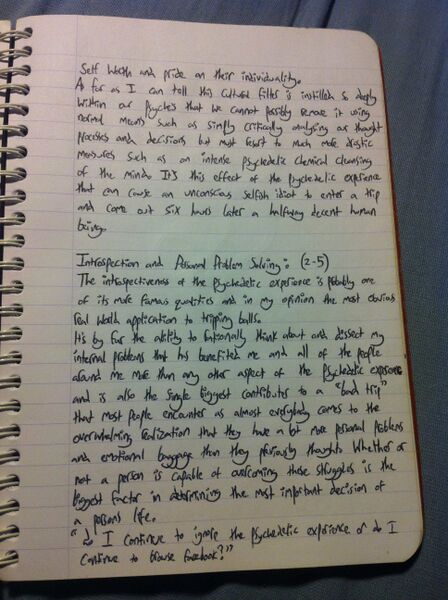 Self Worth and pride on their individuality.
As far as I can tell this cultural filter is instilled so deeply
within our psyche's that we cannot possibly remove it using
normal means such as simply critically analysing our thought
processes and decisions but must resort to much more drastic
measures such as an intense psychedelic chemical cleansing
of the mind. It's this effect of the psychedelic experience
that can cause an unconscious selfish idiot to enter a trip
and come out six hours later a halfway decent human
being.
Introspection and Personal Problem Solving: (2-5)
The introspectiveness of the psychedelic experience is probably one
of its more famous qualities and in my opinion the most obvious
real world application to tripping balls.
It's by far the ability to rationally think about and dissect my
internal problems that has benefited me and all of the people
around me more than any other aspect of the psychedelic experience
and is also the single biggest contributor to a "bad trip"
that most people encounter as almost everybody comes to the
overwhelming realization that they have a lot more personal problems
and emotional baggage than they previously thought. Whether or
not a person is capable of overcoming these struggles is the
biggest factor in determining the most important decision of
a persons life.
"do I continue to ignore the psychedelic experience or do I
continue to browse facebook?"